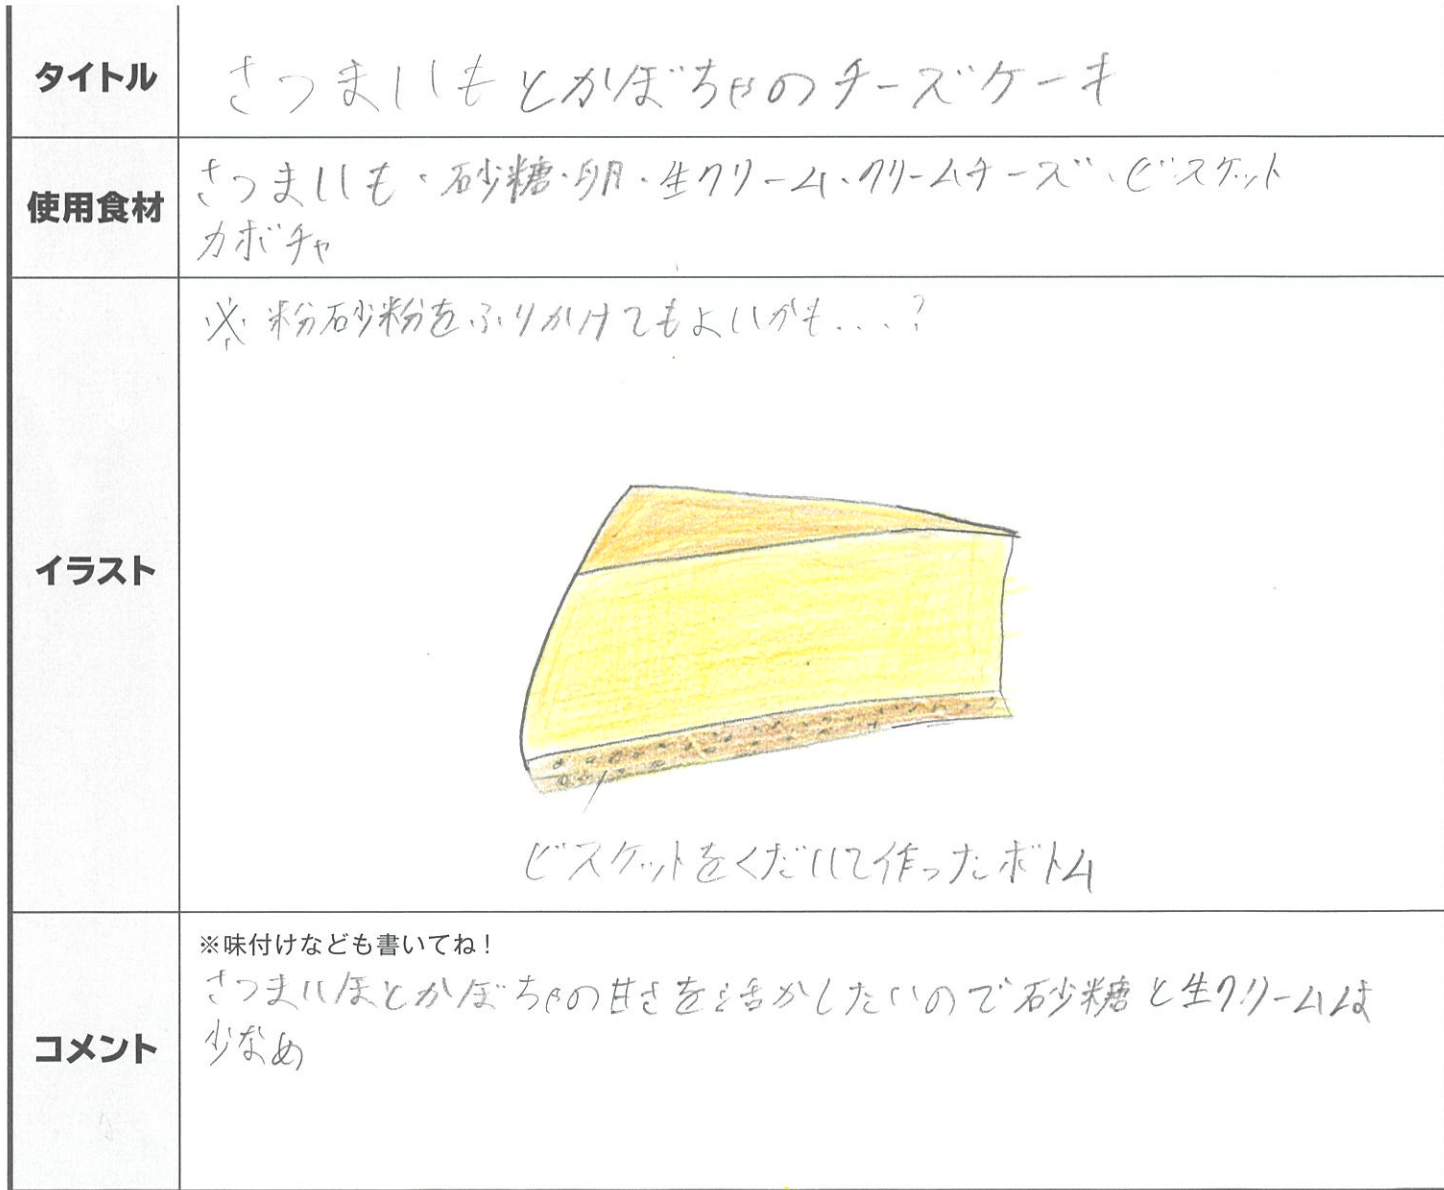 タイトル
さつまいもとかぼちゃのチーズケーキ
使用食材
さつまいも・砂糖・卵・生クリーム・クリームチーズ・ビスケット
カボチャ
イラスト
※粉砂粉をふりかけてもよいかも....?
ビスケットをくだいて作ったボトム
コメント
※味付けなども書いてね!
さつまいほとかぼちゃの甘さを活かしたいので砂糖と生クリームは
少なめ